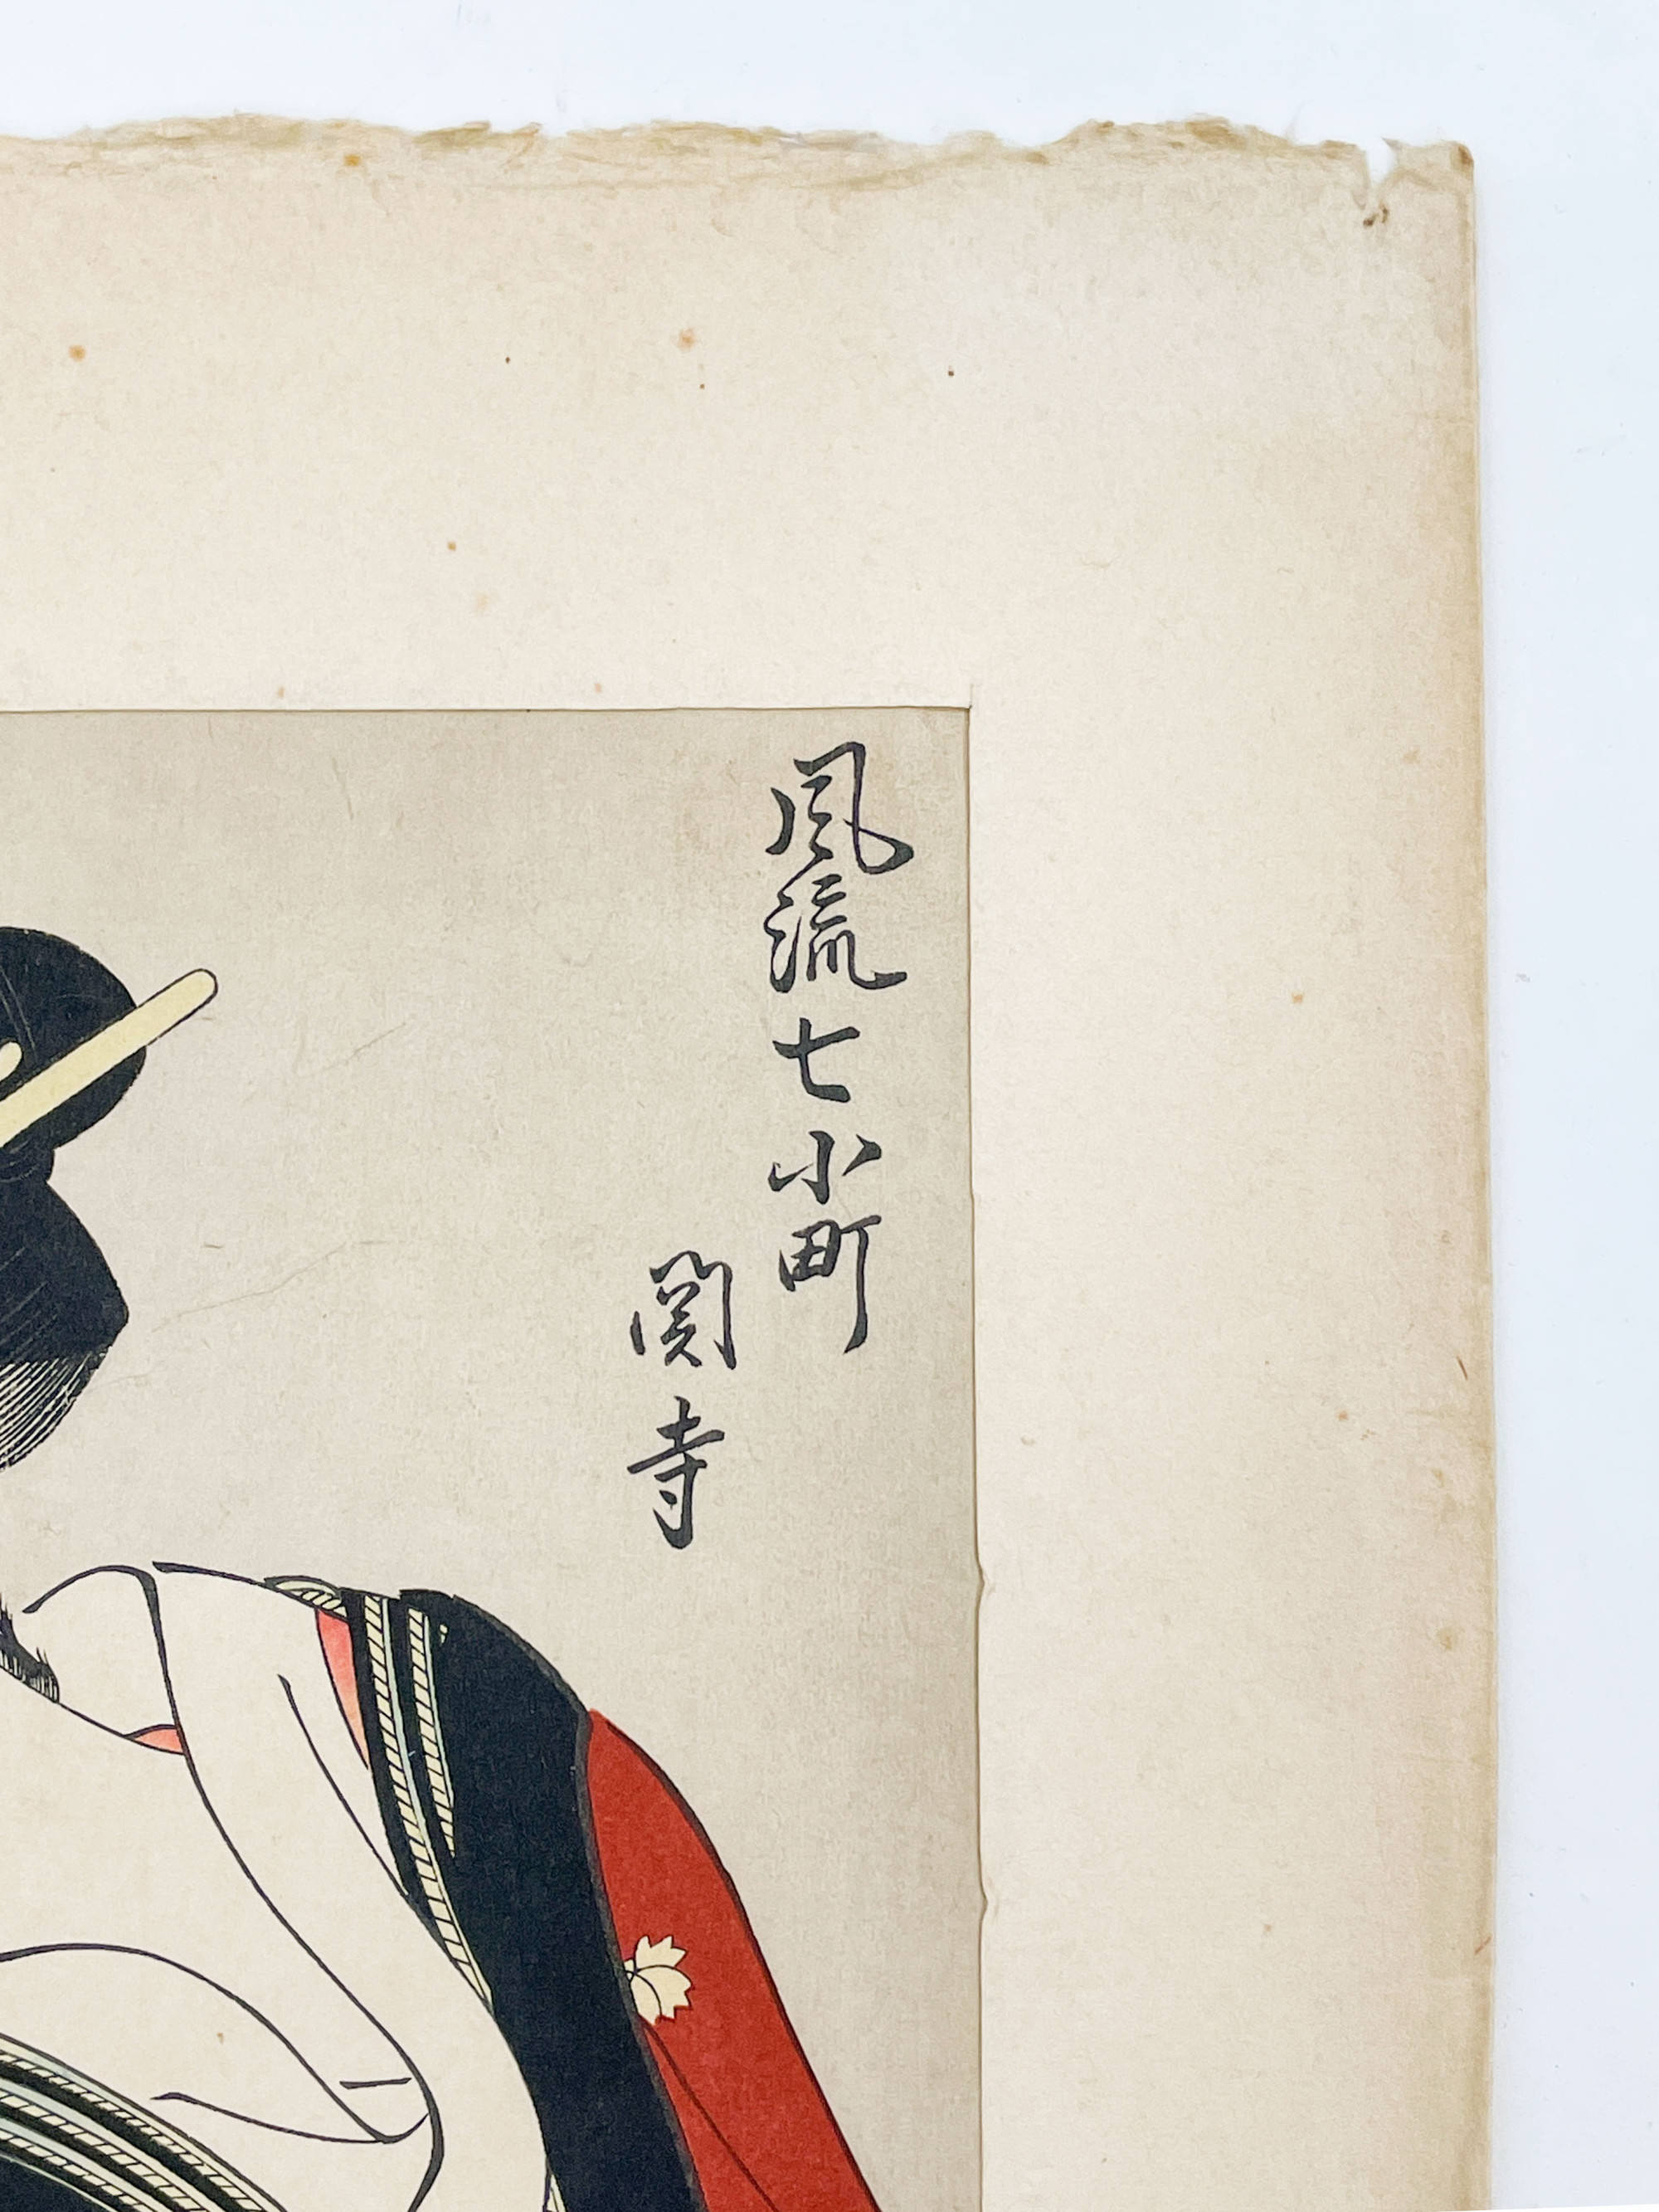 風流七小町
関寺